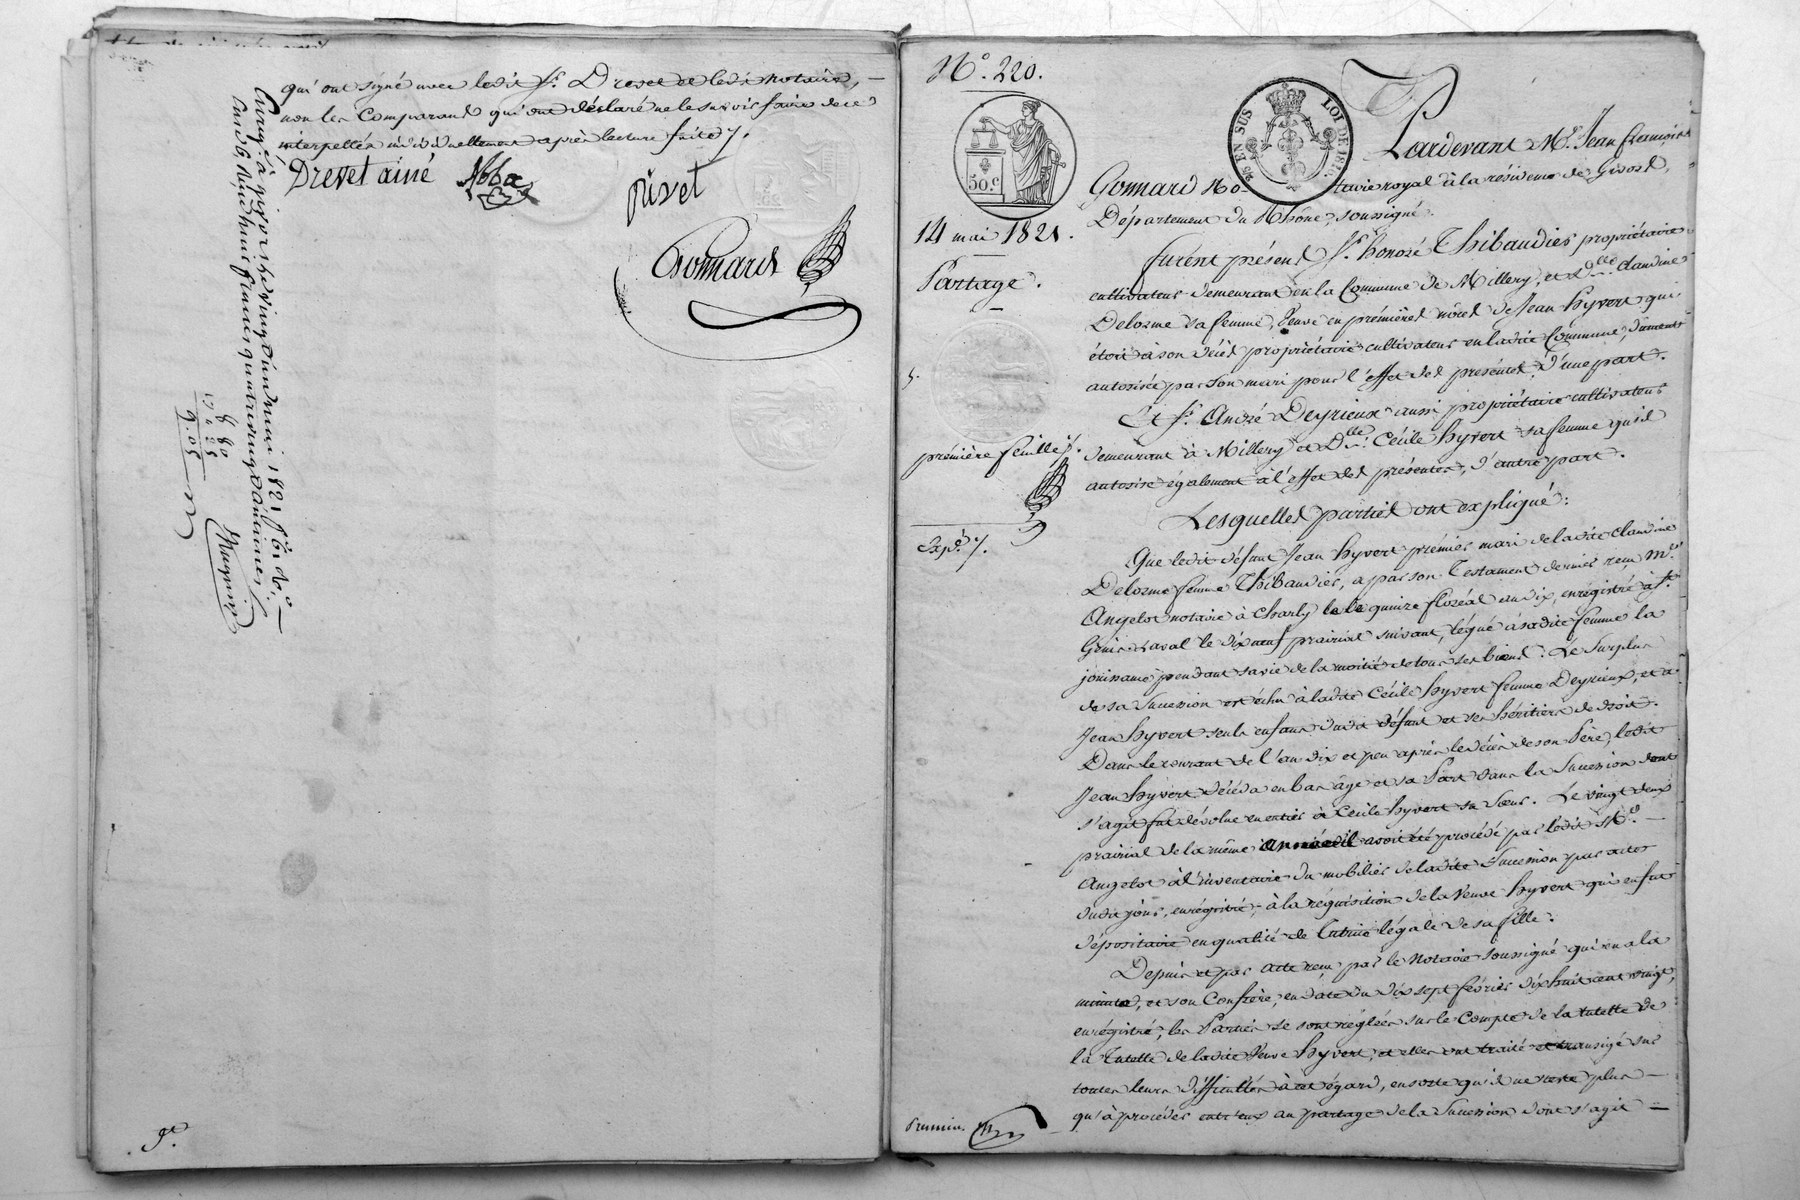 qui ont signé avec ledit Sr. Drevet et ledit notaire, —
non les Comparans qui ont déclaré ne le savoir faire de ce
interpellés individuellement après lecture faite /.
Drevet ainé Abba
Rivet
Gonnard
Enregé à givors le vingt un mai 1821 fo. do.
huit francs quatre vingt centimes
8 80
25
9.05
gt.
No. 220.
50.c
25 EN SUS LOI DE 1816
14 mai 1821.
Partage.
première feuille /.
Expé. /.
Pardevant Me. Jean François
Gonnard Notaire royal à la résidence de Givors,
Département du Rhône, soussigné.
furent présens Sr. honoré Thibaudier propriétaire
cultivateur demeurant en la Commune de Millery, et dlle. Claudine
Delorme sa femme, Veuve en premières nôces de Jean hyvert qui
étoit à son décès propriétaire cultivateur en ladite Commune, dûment
autorisée par son mari pour l'effet des présentes, d'une part.
Et Sr. André Deyrieux aussi propriétaire cultivateur
demeurant à Millery et Dlle. Cécile hyvert sa femme qu'il
autorise également à l'effet des présentes, d'autre part.
Lesquelles parties ont expliqué:
Que ledit défunt Jean hyvert premier mari de ladite Claudine
Delorme femme Thibaudier, a par son Testament dernier reçu Me.
Angelot notaire à Charly le quinze floréal an dix, enrégistré à St.
Genis Laval le dix neuf prairial suivant, légué à sadite femme la
jouissance pendant sa vie de la moitié de tous ses biens. Le Surplus
de sa Succession est échu à ladite Cécile hyvert femme Deyrieux, et à
Jean hyvert seuls enfans dudit défunt et ses héritiers de droit.
Dans le courant de l'an dix et peu après le décès de son Père, ledit
Jean hyvert décéda en bas âge et sa Part dans la Succession dont
s'agit fut dévolue en entier à Cécile hyvert sa Sœur. Le vingt deux
prairial de la même année il avoit été procédé par ledit Me. —
Angelot à l'inventaire du mobilier de ladite Succession par acte
dudit jour, enrégistré, à la réquisition de la Veuve hyvert qui en fut
dépositaire en qualité de Tutrice légale de sa fille.
Depuis et par acte reçu par le Notaire soussigné qui en a la
minute, et son Confrère, en date du dix sept février dix huit cent vingt,
enrégistré, les Parties se sont réglées sur le Compte de la tutelle de
la Tutelle de ladite Veuve hyvert, et elles ont traité et transigé sur
toutes leurs difficultés à cet égard, ensorte qu'il ne reste plus —
qu'à procéder entr'eux au partage de la Succession dont s'agit —